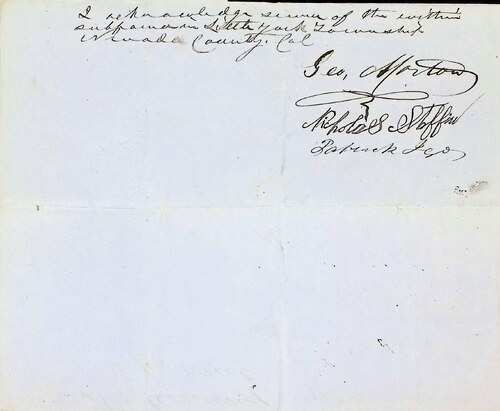 I acknowledge service of the within
subpoena in Little York Township
Nevada County, Cal
Geo, Morton
Nicholas Steffin
Patrick